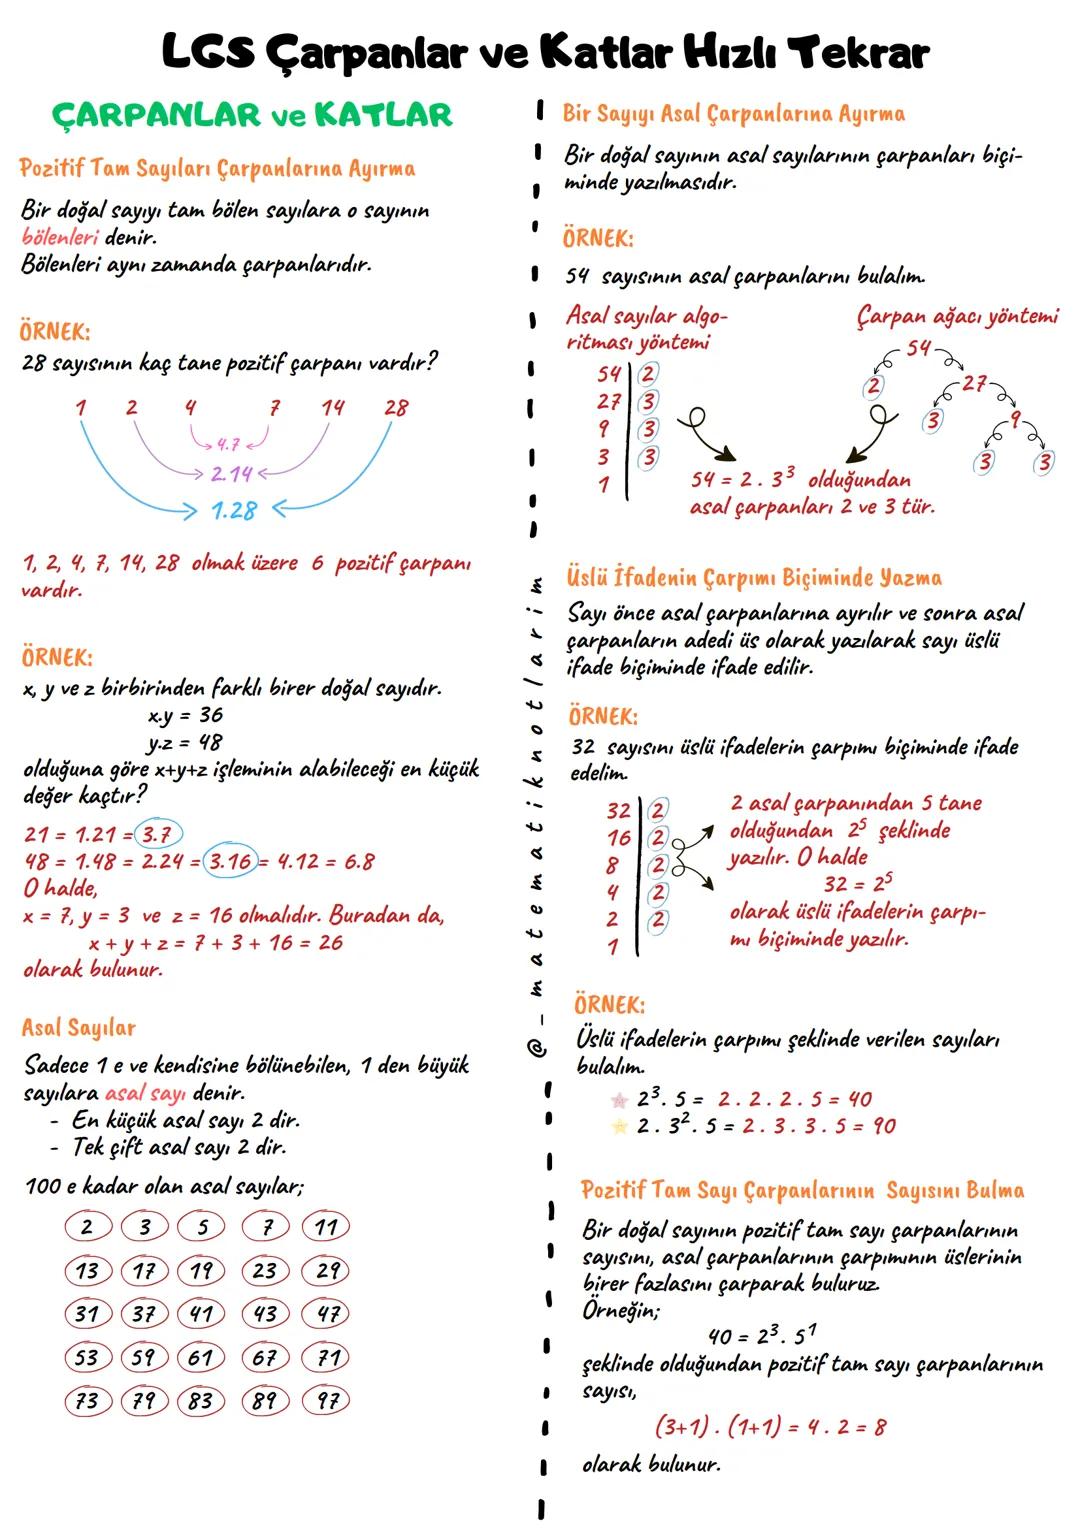 LGS Çarpanlar ve Katlar Hızlı Tekrar
ÇARPANLAR ve KATLAR
Pozitif Tam Sayıları Çarpanlarına Ayırma
Bir doğal sayıyı tam bölen sayılara o sayının
bölenleri denir.
Bölenleri aynı zamanda çarpanlarıdır.
ÖRNEK:
28 sayısının kaç tane pozitif çarpanı vardır?
1 2 4 7 14 28
4.7
2.14
1.28
1, 2, 4, 7, 14, 28 olmak üzere 6 pozitif çarpanı
vardır.
ÖRNEK:
x, y ve z birbirinden farklı birer doğal sayıdır.
x.y = 36
y.z = 48
olduğuna göre x+y+z işleminin alabileceği en küçük
değer kaçtır?
21 = 1.21 = 3.7
48 = 1.48 = 2.24 = 3.16 = 4.12 = 6.8
O halde,
x = 7, y = 3 ve z = 16 olmalıdır. Buradan da,
x + y + z = 7 + 3 + 16 = 26
olarak bulunur.
Asal Sayılar
Sadece 1 e ve kendisine bölünebilen, 1 den büyük
sayılara asal sayı denir.
- En küçük asal sayı 2 dir.
- Tek çift asal sayı 2 dir.
100 e kadar olan asal sayılar;
2 3 5 7 11
13 17 19 23 29
31 37 41 43 47
53 59 61 67 71
73 79 83 89 97
@_matematiknotlarim
Bir Sayıyı Asal Çarpanlarına Ayırma
Bir doğal sayının asal sayılarının çarpanları biçi-
minde yazılmasıdır.
ÖRNEK:
54 sayısının asal çarpanlarını bulalım.
Asal sayılar algo-
ritması yöntemi
54 2
27 3
9 3
3 3
1
Çarpan ağacı yöntemi
54
2 27
3 9
3 3
54 = 2 . 3³ olduğundan
asal çarpanları 2 ve 3 tür.
Üslü İfadenin Çarpımı Biçiminde Yazma
Sayı önce asal çarpanlarına ayrılır ve sonra asal
çarpanların adedi üs olarak yazılarak sayı üslü
ifade biçiminde ifade edilir.
ÖRNEK:
32 sayısını üslü ifadelerin çarpımı biçiminde ifade
edelim.
32 2
16 2
8 2
4 2
2 2
1
2 asal çarpanından 5 tane
olduğundan 2⁵ şeklinde
yazılır. O halde
32 = 2⁵
olarak üslü ifadelerin çarpı-
mı biçiminde yazılır.
ÖRNEK:
Üslü ifadelerin çarpımı şeklinde verilen sayıları
bulalım.
2³. 5 = 2 . 2 . 2 . 5 = 40
2 . 3². 5 = 2 . 3 . 3 . 5 = 90
Pozitif Tam Sayı Çarpanlarının Sayısını Bulma
Bir doğal sayının pozitif tam sayı çarpanlarının
sayısını, asal çarpanlarının çarpımının üslerinin
birer fazlasını çarparak buluruz.
Örneğin;
40 = 2³. 5¹
şeklinde olduğundan pozitif tam sayı çarpanlarının
sayısı,
(3+1) . (1+1) = 4 . 2 = 8
olarak bulunur.